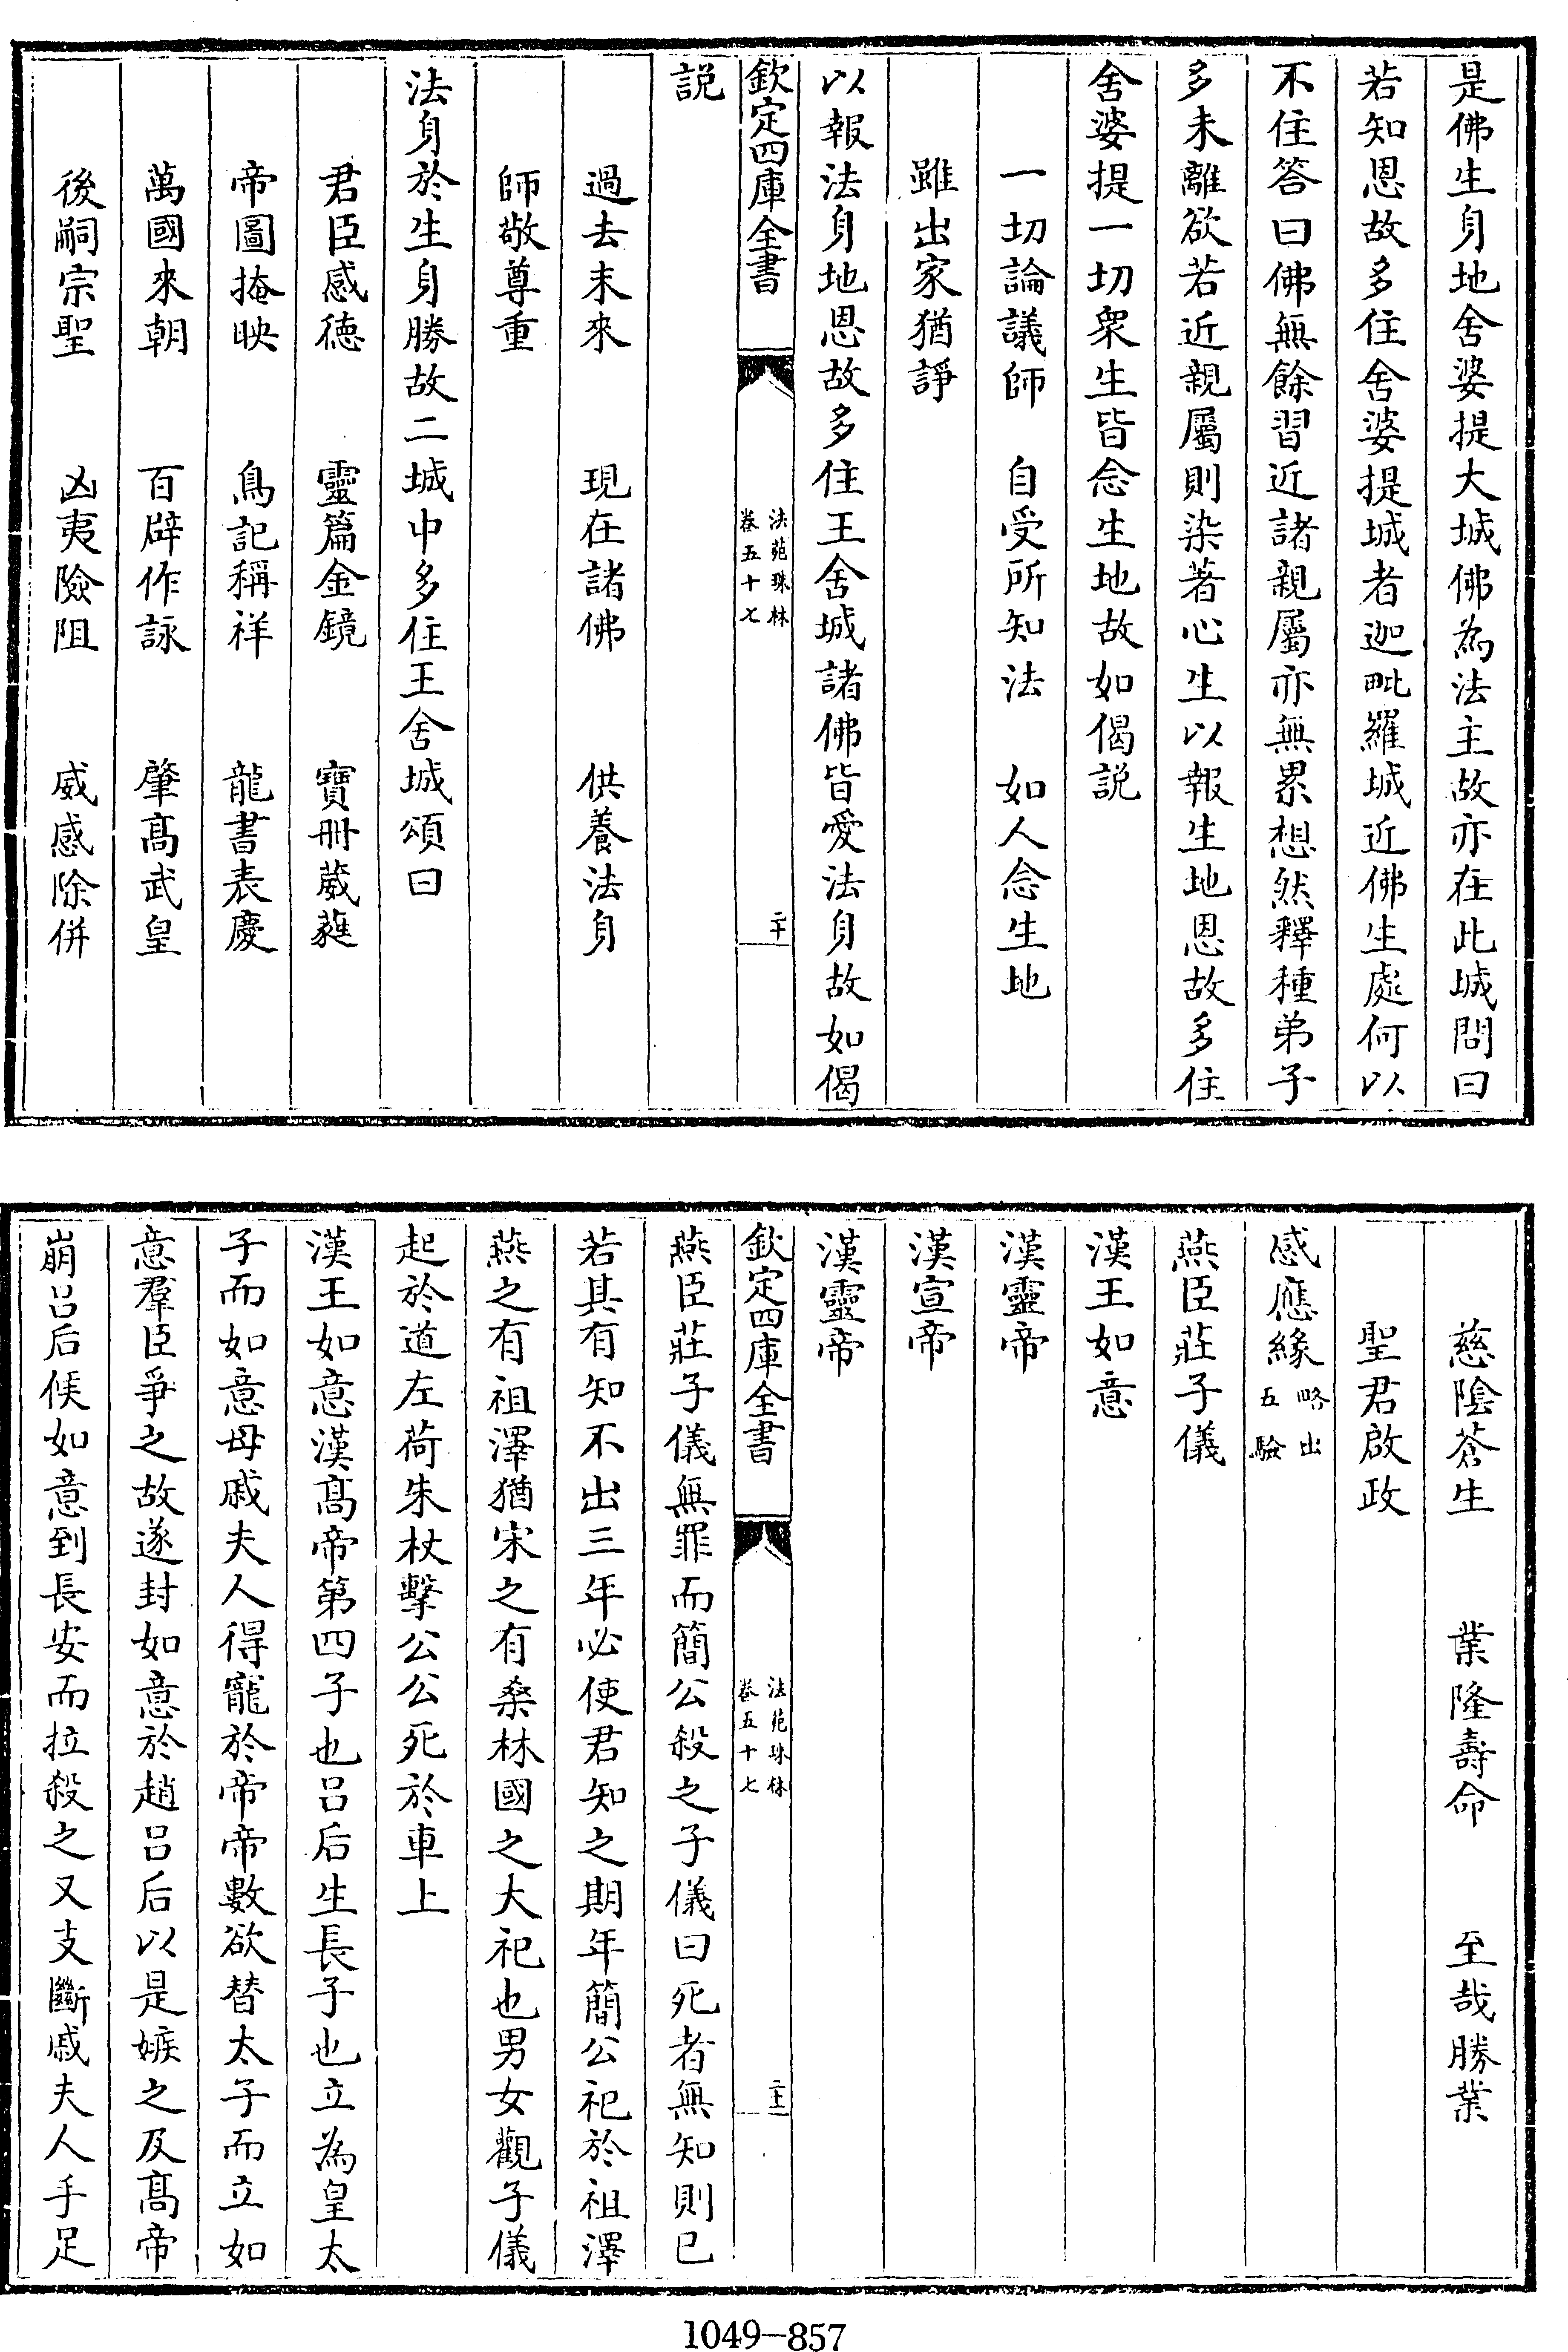 是佛生身地舍婆提大城佛為法主故亦在此城問曰
若知恩故多住舍婆提城者迦毗羅城近佛生處何以
不住答曰佛無餘習近諸親屬亦無累想然釋種弟子
多未離欲若近親屬則染著心生以報生地恩故多住
舍婆提一切衆生皆念生地故如偈説
一切論議師　自受所知法　如人念生地
雖出家猶諍
以報法身地恩故多住王舍城諸佛皆愛法身故如偈
欽定四庫全書　法苑珠林
卷五十七　二十
説
過去未來　現在諸佛　供養法身
師敬尊重
法身於生身勝故二城中多住王舍城頌曰
君臣感徳　靈篇金鏡　寶冊葳蕤
帝圖掩映　鳥記稱祥　龍書表慶
萬國來朝　百辟作詠　肇髙武皇
後嗣宗聖　凶夷險阻　威惑除併
慈陰蒼生　業隆壽命　至哉勝業
聖君啟政
感應緣略出
五驗
燕臣莊子儀
漢王如意
漢靈帝
漢宣帝
漢靈帝
欽定四庫全書　法苑珠林
卷五十七　二十一
燕臣莊子儀無罪而簡公殺之子儀曰死者無知則已
若其有知不出三年必使君知之期年簡公祀於祖澤
燕之有祖澤猶宋之有桑林國之大祀也男女觀子儀
起於道左荷朱杖擊公公死於車上
漢王如意漢髙帝第四子也吕后生長子也立為皇太
子而如意母戚夫人得寵於帝帝數欲替太子而立如
意羣臣爭之故遂封如意於趙吕后以是嫉之及髙帝
崩吕后候如意到長安而拉殺之又支斷戚夫人手足
1049-857